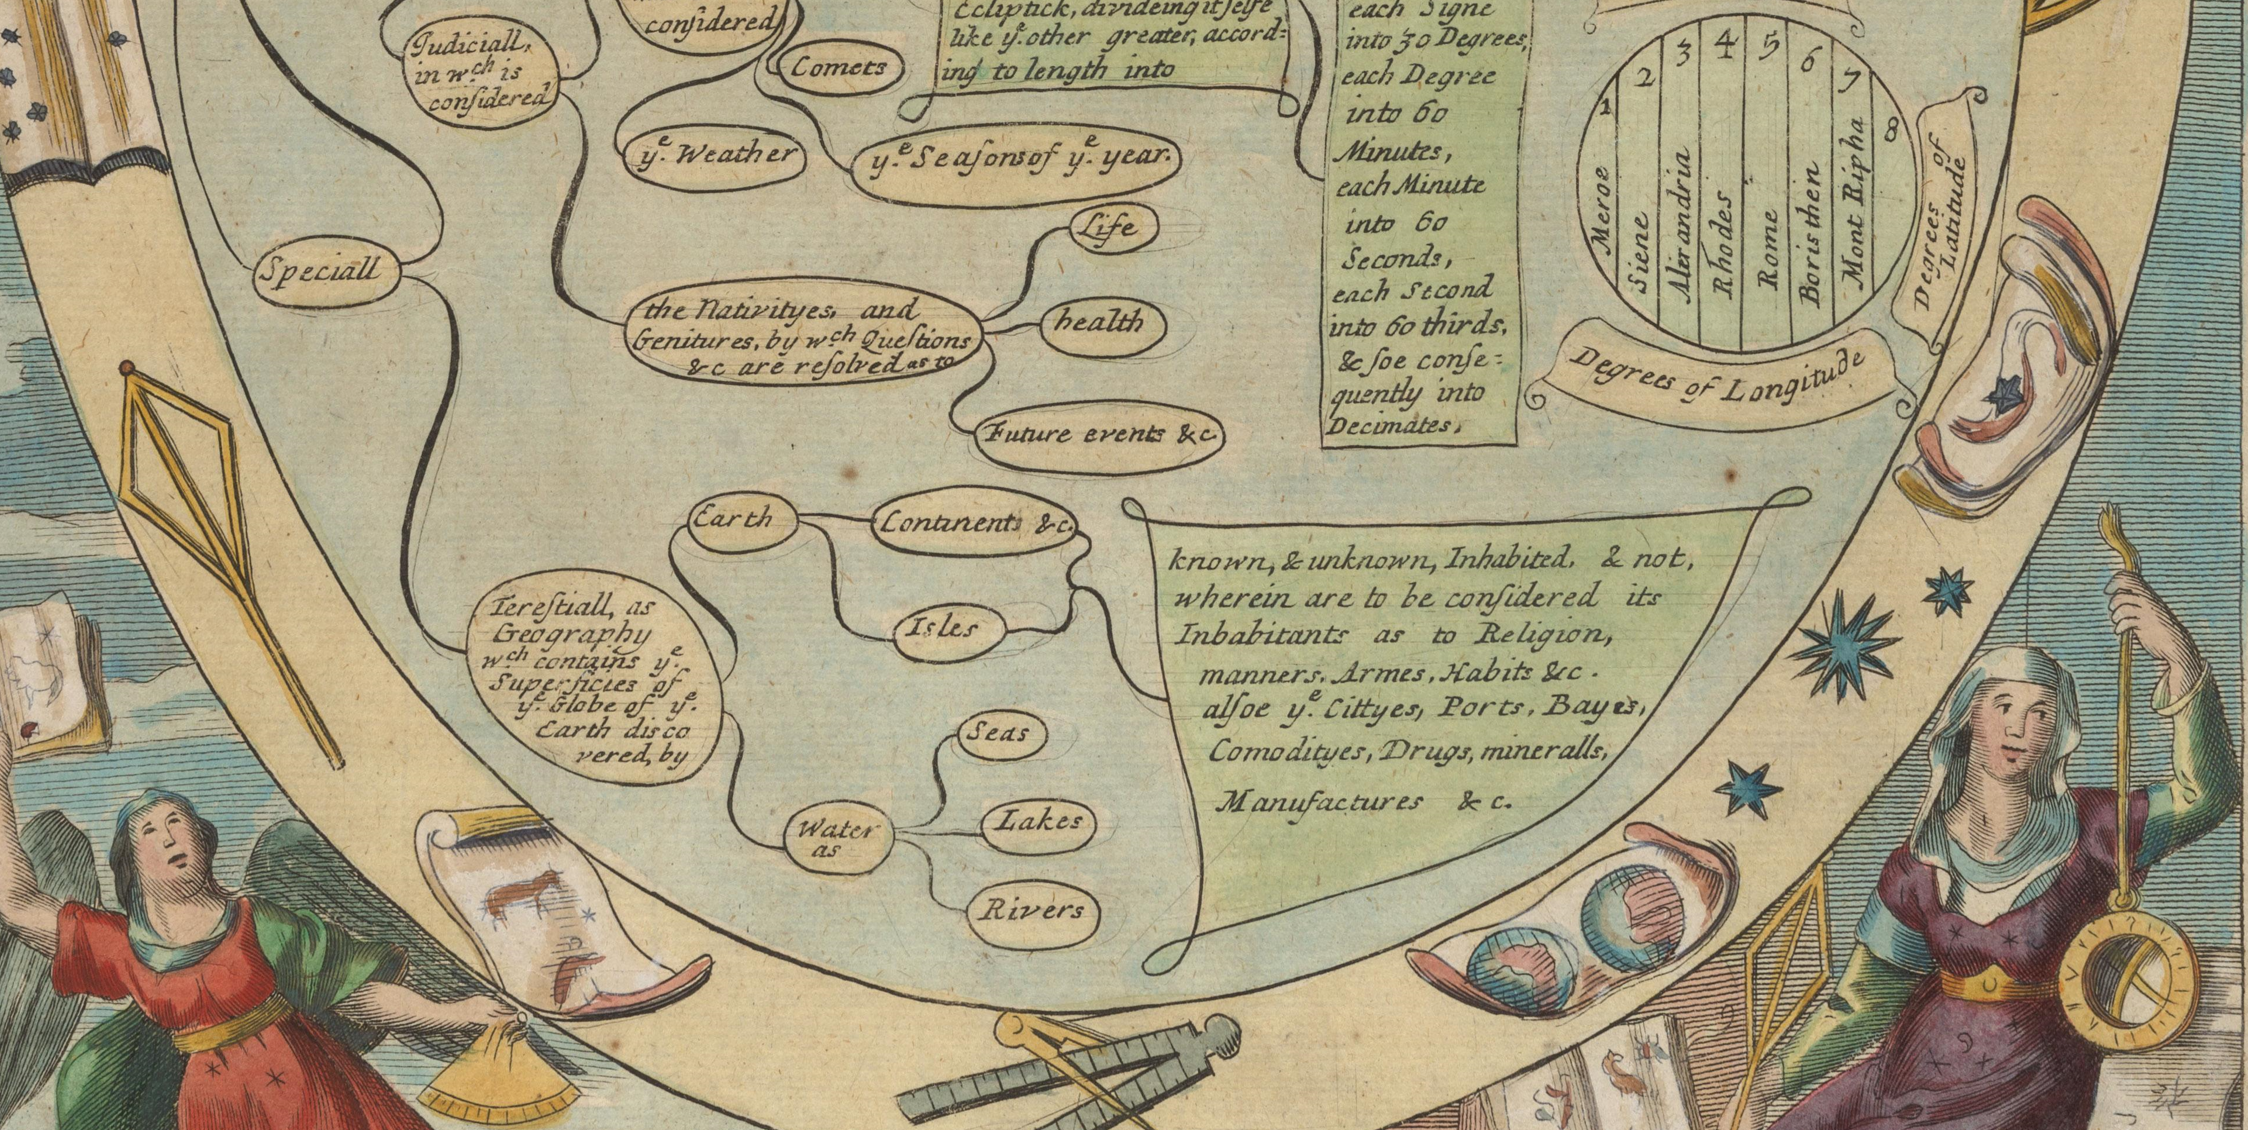 Judiciall,
in wch is
conſidered
conſidered
Comets
ye Weather
ye Seaſons of ye year.
Ecliptick, divideing it ſelfe
like ye other greater, accord=
ing to length into
each Signe
into 30 Degrees,
each Degree
into 60
Minutes,
each Minute
into 60
Seconds,
each Second
into 60 thirds,
& ſoe conſe=
quently into
Decimates,
1 2 3 4 5 6 7 8
Meroe
Siene
Alexandria
Rhodes
Rome
Boristhen
Mont Ripha
Degrees of
Latitude
Degrees of Longitude
Speciall
the Nativityes, and
Genitures, by wch Queſtions
&c are reſolved as to
Life
health
Future events &c
Tereſtiall, as
Geography
wch contains ye
Superficies of
ye Globe of ye
Earth disco
vered, by
Earth
Continents &c.
Isles
Water
as
Seas
Lakes
Rivers
known, & unknown, Inhabited, & not,
wherein are to be conſidered its
Inhabitants as to Religion,
manners, Armes, Habits &c.
alſoe ye Cittyes, Ports, Bayes,
Comodityes, Drugs, mineralls,
Manufactures &c.